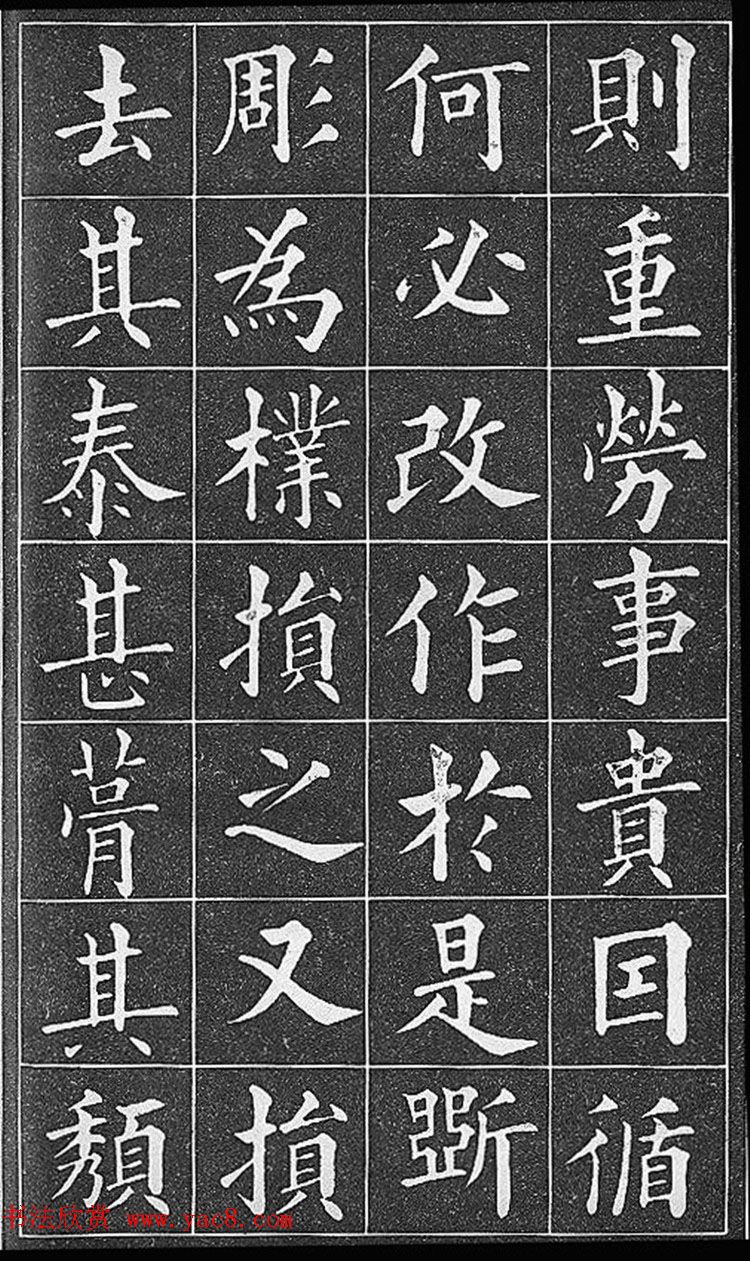 則重勞事貴因循
何必改作於是斵
彫為樸損之又損
去其泰甚葺其頹
书法欣赏 www.yac8.com